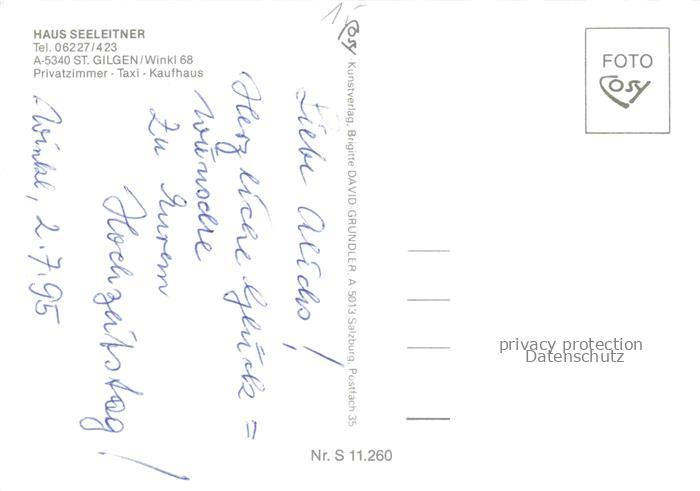 HAUS SEELEITNER
Tel. 06227/423
A-5340 ST. GILGEN/Winkl 68
Privatzimmer - Taxi - Kaufhaus
Liebe
Herzliche Glück =
wünsche
Zu Eurem
Hochzeitstag!
Winkl, 2.7.95
Cosy · Kunstverlag, Brigitte DAVID-GRÜNDLER A 5013 Salzburg, Postfach 35
FOTO
Cosy
privacy protection
Datenschutz
Nr. S 11.260